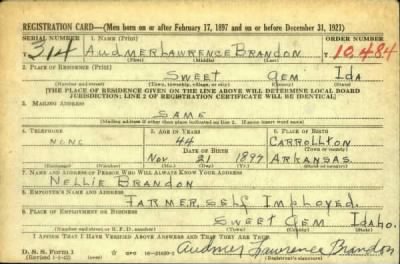 REGISTRATION CARD—(Men born on or after February 17, 1897 and on or before December 31, 1921)
SERIAL NUMBER 1. NAME (Print) ORDER NUMBER
314 AUDMER LAWRENCE BRANDON 10,484
(First) (Middle) (Last)
2. PLACE OF RESIDENCE (Print)
SWEET GEM Ida
(Number and street) (Town, township, village, or city) (County) (State)
[THE PLACE OF RESIDENCE GIVEN ON THE LINE ABOVE WILL DETERMINE LOCAL BOARD
JURISDICTION; LINE 2 OF REGISTRATION CERTIFICATE WILL BE IDENTICAL]
3. MAILING ADDRESS
SAME
[Mailing address if other than place indicated on line 2. If same insert word same]
4. TELEPHONE 5. AGE IN YEARS 6. PLACE OF BIRTH
NONE 44 CARROLLTON
DATE OF BIRTH (Town or county)
Nov 21 1897 ARKANSAS
(Exchange) (Number) (Mo.) (Day) (Yr.) (State or country)
7. NAME AND ADDRESS OF PERSON WHO WILL ALWAYS KNOW YOUR ADDRESS
NELLIE BRANDON
8. EMPLOYER'S NAME AND ADDRESS
FARMER, SELF IMPLOYED.
9. PLACE OF EMPLOYMENT OR BUSINESS
SWEET GEM IDAHO.
(Number and street or R. F. D. number) (Town) (County) (State)
I AFFIRM THAT I HAVE VERIFIED ABOVE ANSWERS AND THAT THEY ARE TRUE.
D. S. S. Form 1
GPO
Audmer Lawrence Brandon